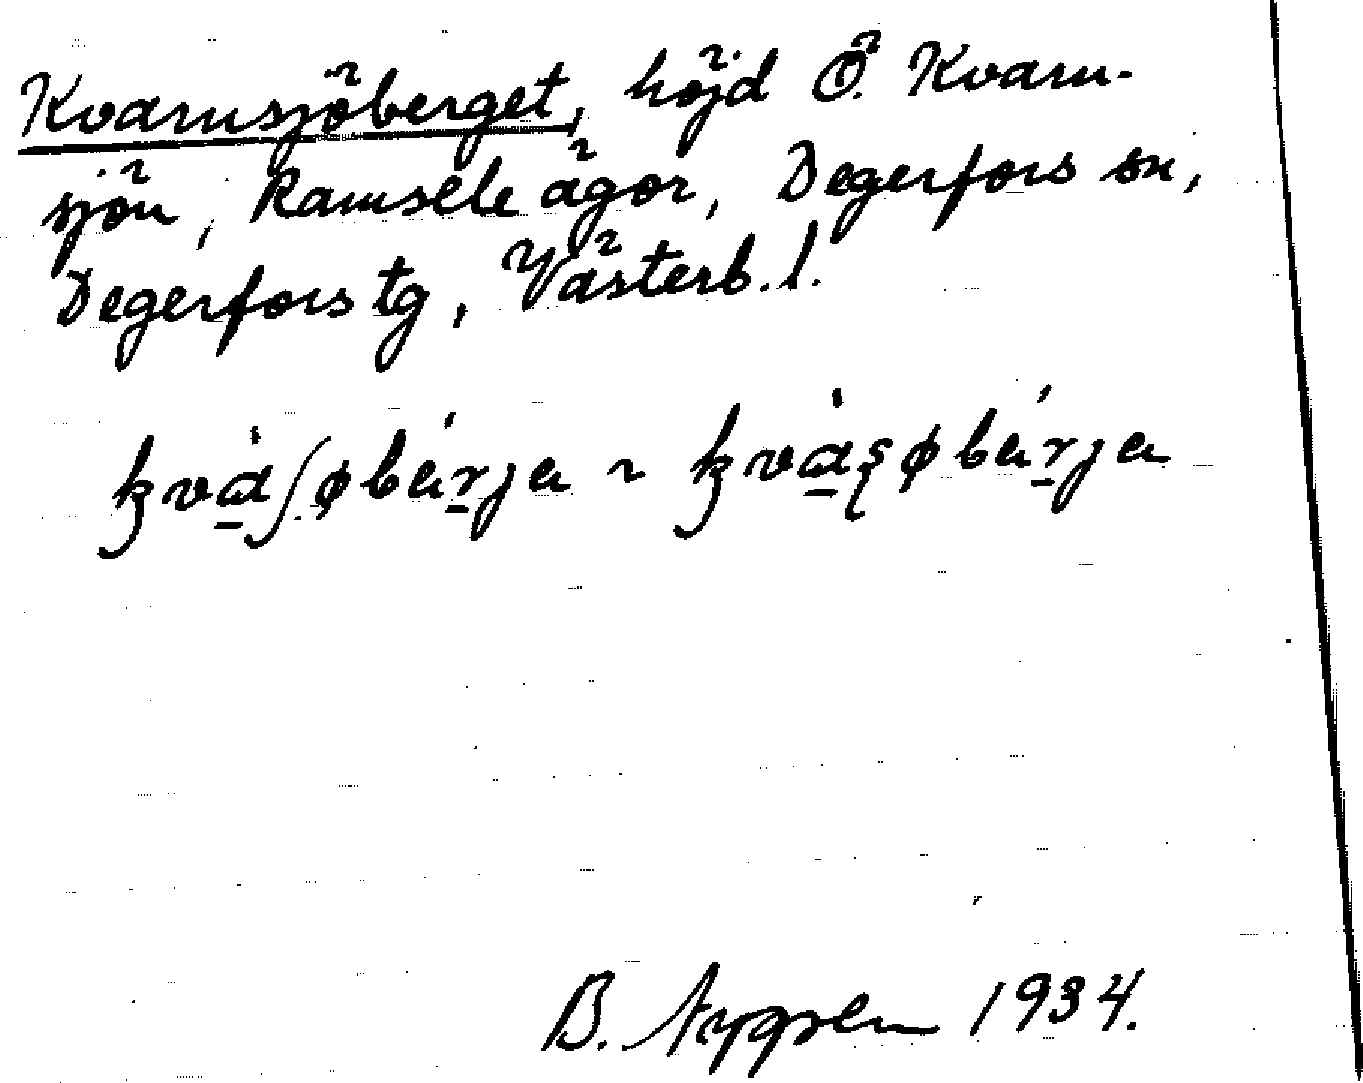 Kvarnsjöberget, höjd Ö. Kvarn-
sjön, Ramsele ägor, Degerfors sn,
Degerfors tg, Västerb. l.
kvὰʃøbárja ~ kvὰʂøbárja
B. Nygren 1934.